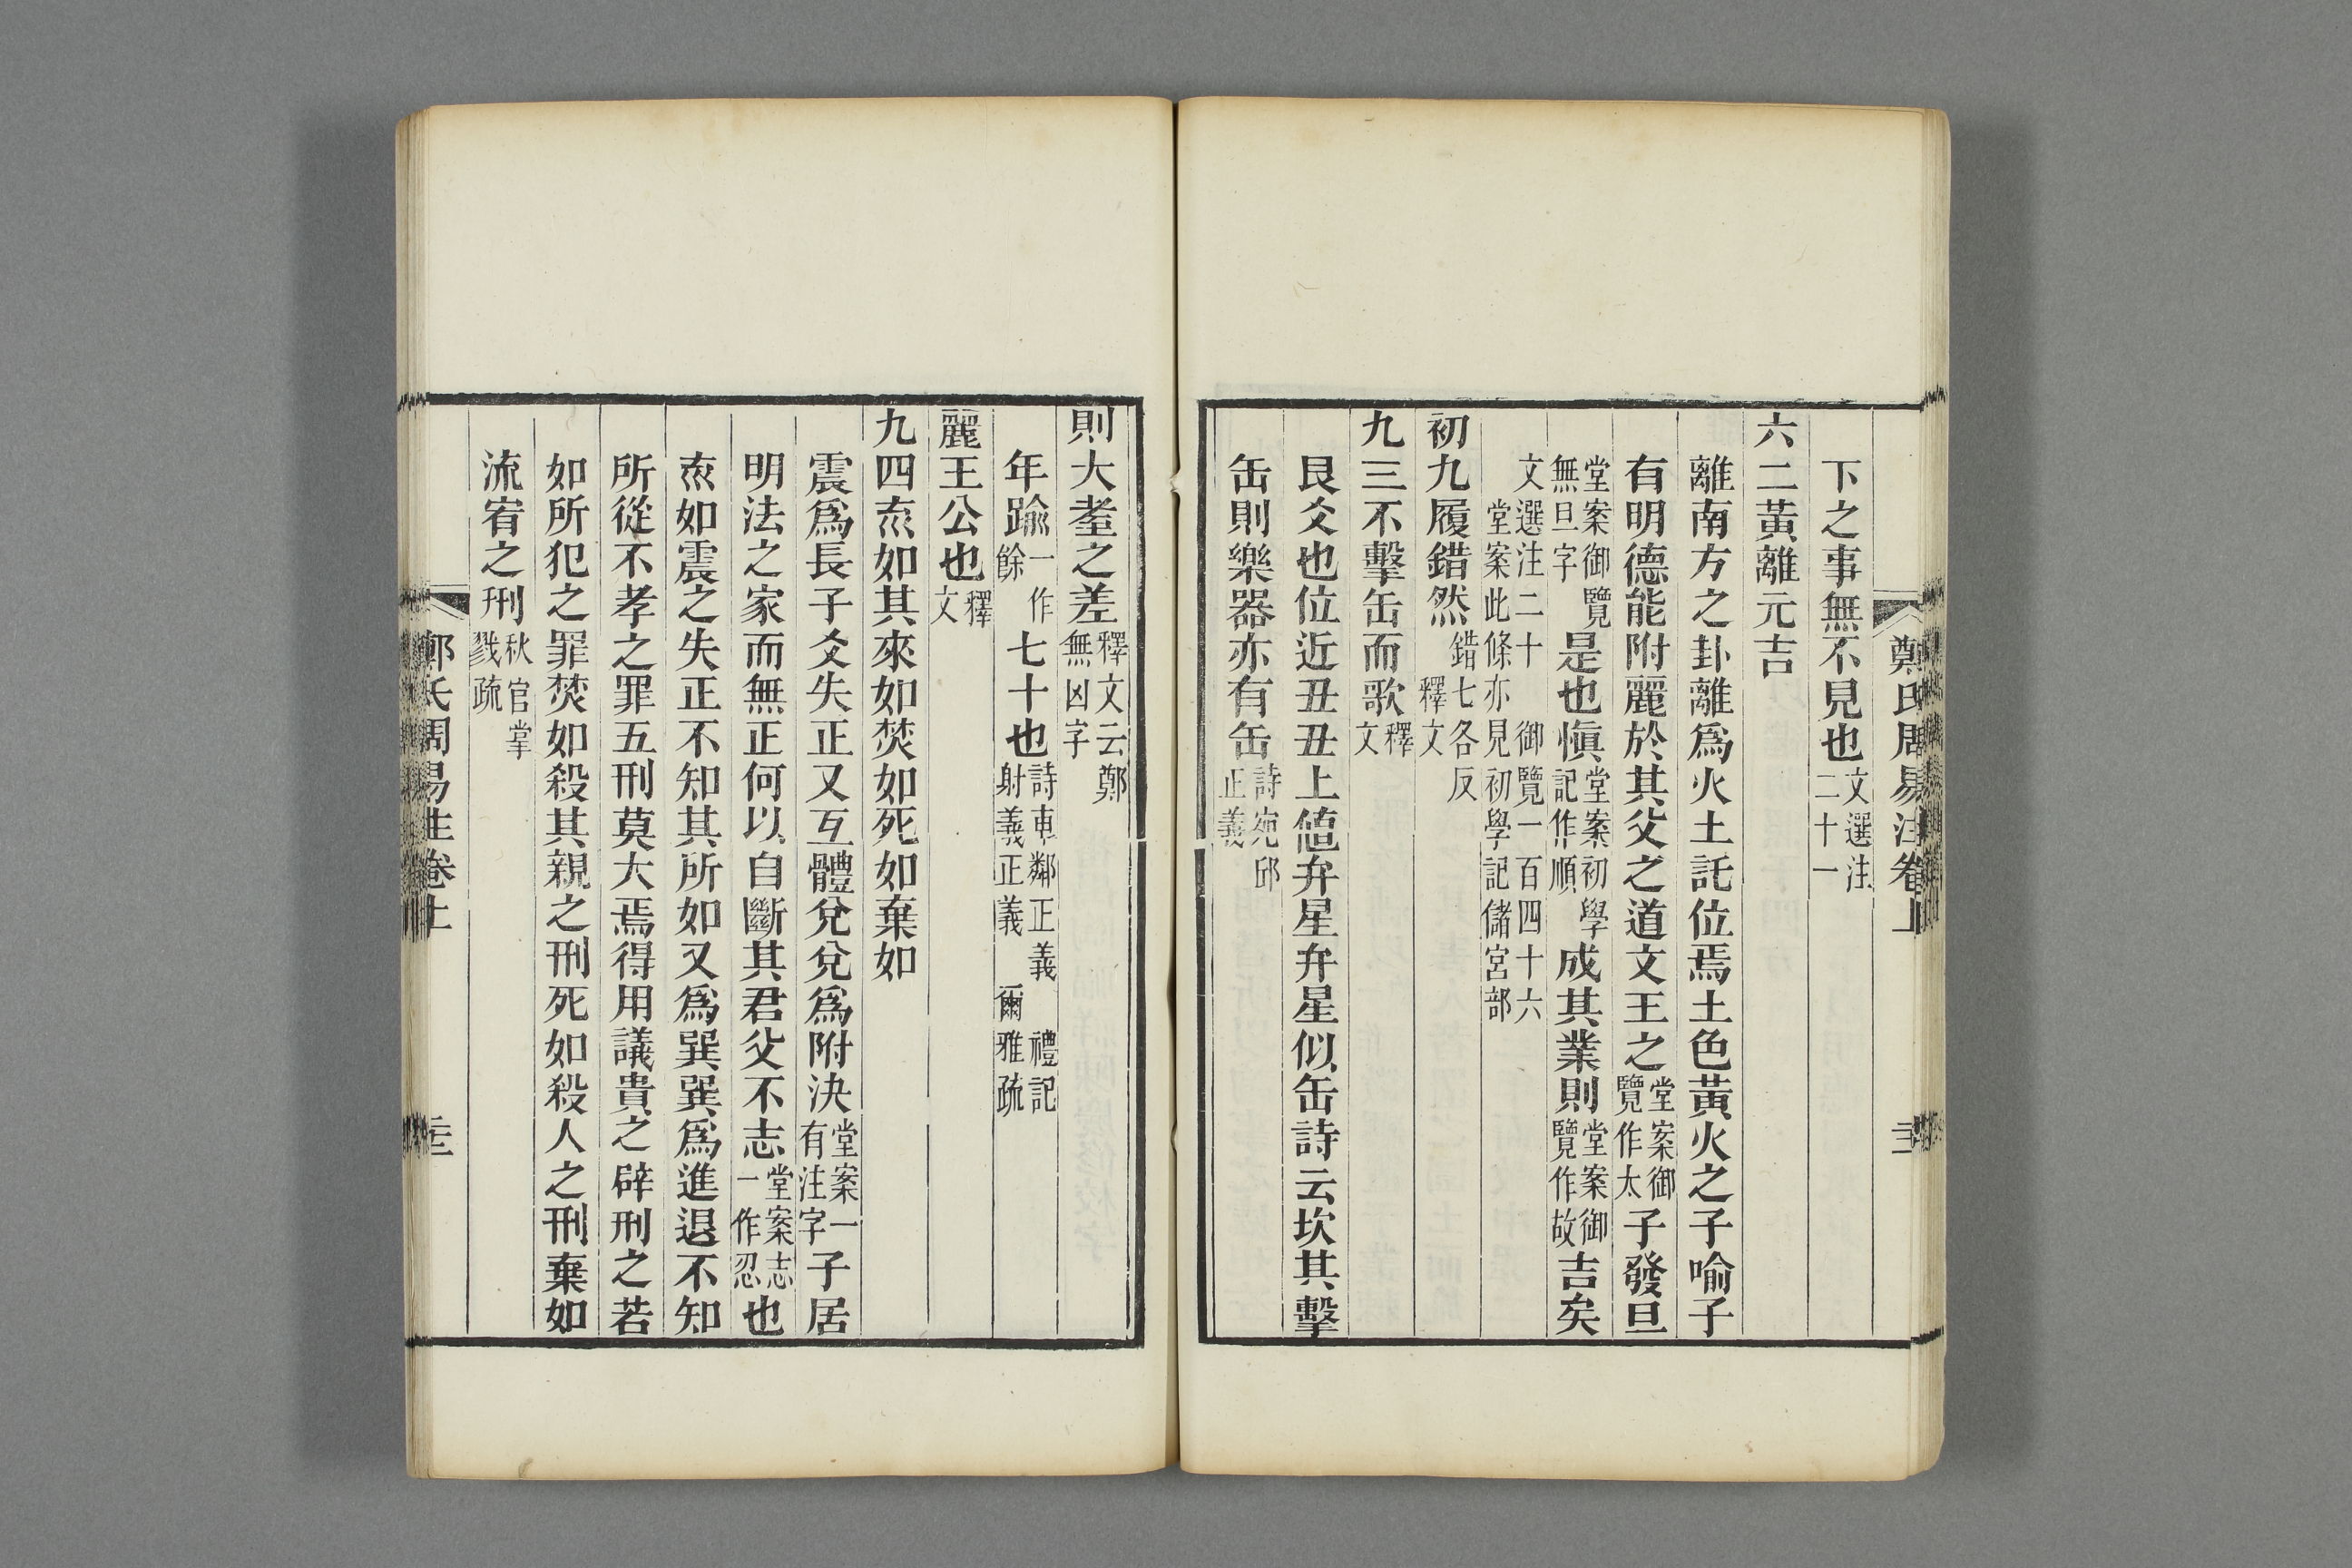 鄭氏周易注卷上 二十二
下之事無不見也文選注二十一
六二黃離元吉
離南方之卦離爲火土託位焉土色黃火之子喻子
有明德能附麗於其父之道文王之堂案御覽作太子發旦
堂案御覽無旦字是也愼堂案初學記作順成其業則堂案御覽作故吉矣
文選注二十 御覽一百四十六
堂案此條亦見初學記儲宮部
初九履錯然錯七各反釋文
九三不擊缶而歌釋文
艮爻也位近丑丑上値弁星弁星似缶詩云坎其擊
缶則樂器亦有缶詩宛邱正義
則大耋之差釋文云鄭無凶字
年踰一作餘七十也詩車鄰正義 禮記射義正義 爾雅疏
麗王公也釋文
九四𠫓如其來如焚如死如棄如
震爲長子爻失正又互體兌兌爲附決堂案一有注字子居
明法之家而無正何以自斷其君父不志堂案志一作忍也
𠫓如震之失正不知其所如又爲巽巽爲進退不知
所從不孝之罪五刑莫大焉得用議貴之辟刑之若
如所犯之罪焚如殺其親之刑死如殺人之刑棄如
流宥之刑秋官掌戮疏
鄭氏周易注卷上 二十三